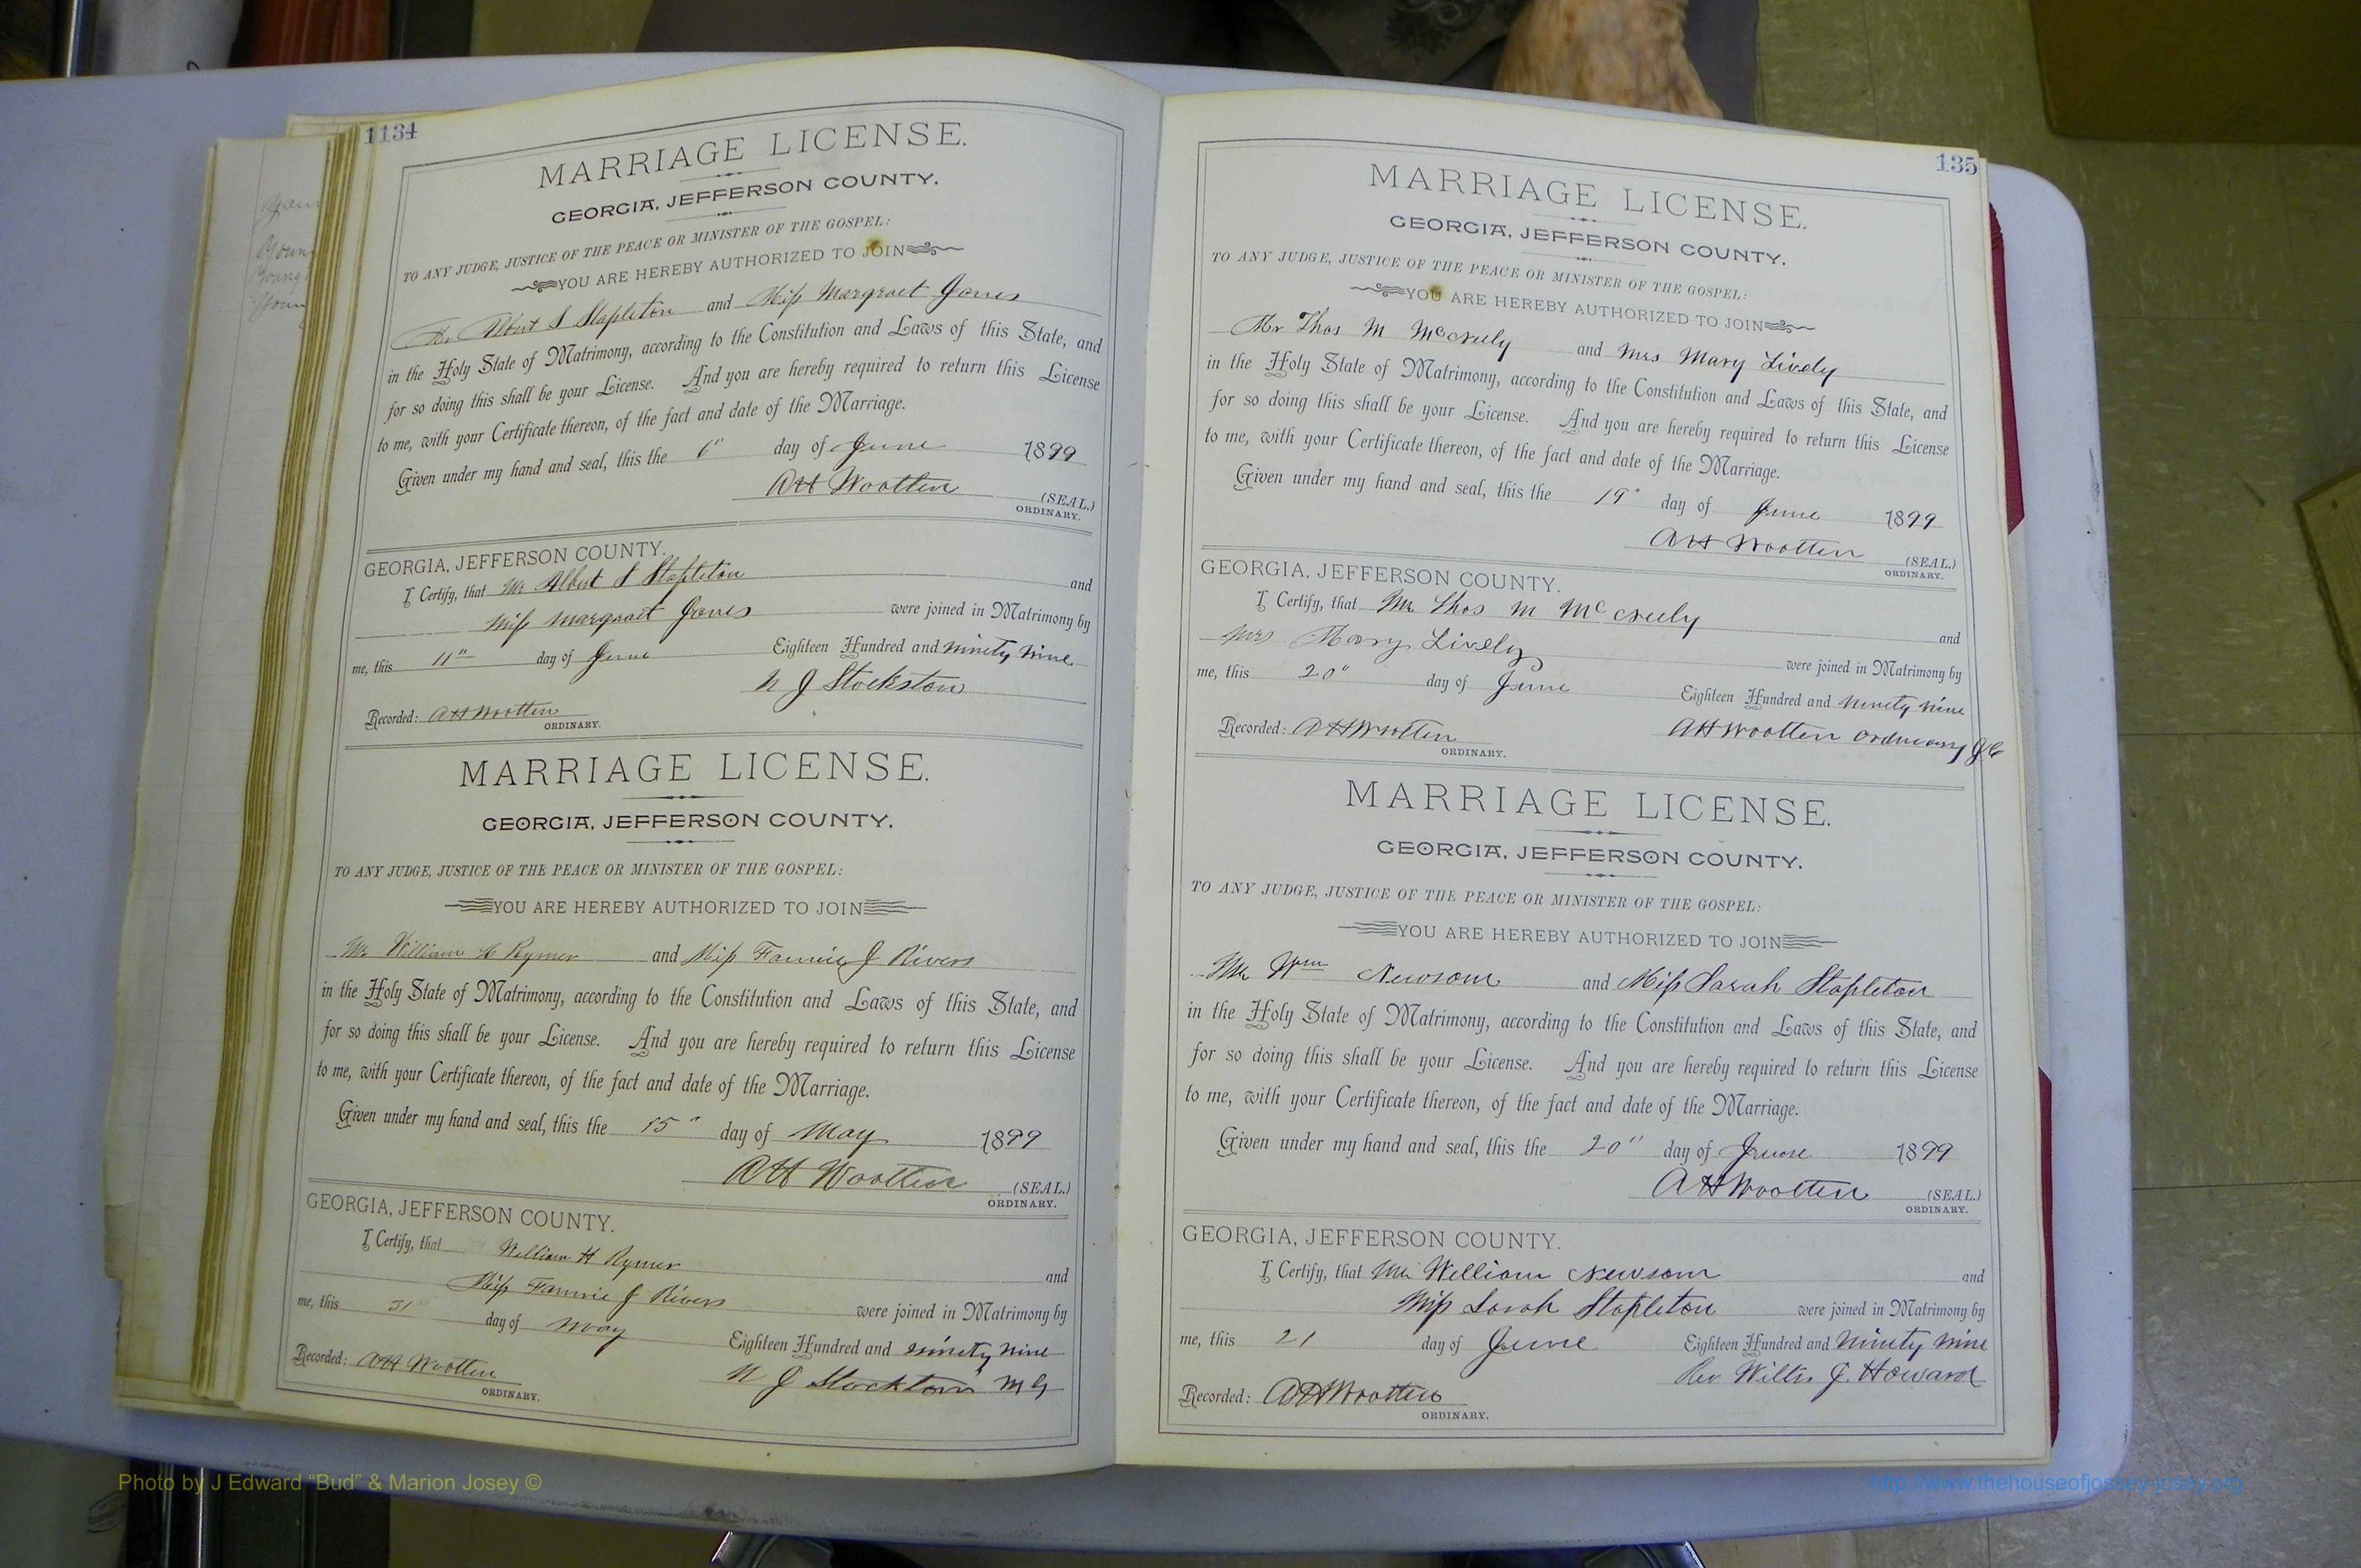 1134
MARRIAGE LICENSE.
GEORGIA, JEFFERSON COUNTY.
TO ANY JUDGE, JUSTICE OF THE PEACE OR MINISTER OF THE GOSPEL:
YOU ARE HEREBY AUTHORIZED TO JOIN
Albert S Stapleton and Miss Margraet Jones
in the Holy State of Matrimony, according to the Constitution and Laws of this State, and
for so doing this shall be your License. And you are hereby required to return this License
to me, with your Certificate thereon, of the fact and date of the Marriage.
Given under my hand and seal, this the day of June 1899
AH Wootten (SEAL.)
ORDINARY.
GEORGIA, JEFFERSON COUNTY.
I Certify, that Mr Albert S Stapleton and
Miss Margraet Jones were joined in Matrimony by
me, this 11" day of June Eighteen Hundred and ninety nine
N J Stockston
Recorded: AH Wootten
ORDINARY.
MARRIAGE LICENSE.
GEORGIA, JEFFERSON COUNTY.
TO ANY JUDGE, JUSTICE OF THE PEACE OR MINISTER OF THE GOSPEL:
YOU ARE HEREBY AUTHORIZED TO JOIN
Mr William H Rymer and Miss Fannie J Rivers
in the Holy State of Matrimony, according to the Constitution and Laws of this State, and
for so doing this shall be your License. And you are hereby required to return this License
to me, with your Certificate thereon, of the fact and date of the Marriage.
Given under my hand and seal, this the 15" day of May 1899
AH Wootten (SEAL.)
ORDINARY.
GEORGIA, JEFFERSON COUNTY.
I Certify, that William H Rymer and
Miss Fannie J Rivers were joined in Matrimony by
me, this 31 day of May Eighteen Hundred and ninety nine
N J Stockton M G
Recorded: AH Wootten
ORDINARY.
135
MARRIAGE LICENSE.
GEORGIA, JEFFERSON COUNTY.
TO ANY JUDGE, JUSTICE OF THE PEACE OR MINISTER OF THE GOSPEL:
YOU ARE HEREBY AUTHORIZED TO JOIN
Mr Thos M McNeely and Mrs Mary Lively
in the Holy State of Matrimony, according to the Constitution and Laws of this State, and
for so doing this shall be your License. And you are hereby required to return this License
to me, with your Certificate thereon, of the fact and date of the Marriage.
Given under my hand and seal, this the 19" day of June 1899
AH Wootten (SEAL.)
ORDINARY.
GEORGIA, JEFFERSON COUNTY.
I Certify, that Mr. Thos M McNeely and
Mrs Mary Lively were joined in Matrimony by
me, this 20" day of June Eighteen Hundred and ninety nine
AH Wootten Ordinary JC
Recorded: AH Wootten
ORDINARY.
MARRIAGE LICENSE.
GEORGIA, JEFFERSON COUNTY.
TO ANY JUDGE, JUSTICE OF THE PEACE OR MINISTER OF THE GOSPEL:
YOU ARE HEREBY AUTHORIZED TO JOIN
Mr Wm Newsom and Miss Sarah Stapleton
in the Holy State of Matrimony, according to the Constitution and Laws of this State, and
for so doing this shall be your License. And you are hereby required to return this License
to me, with your Certificate thereon, of the fact and date of the Marriage.
Given under my hand and seal, this the 20" day of June 1899
AH Wootten (SEAL.)
ORDINARY.
GEORGIA, JEFFERSON COUNTY.
I Certify, that Mr. William Newsom and
Miss Sarah Stapleton were joined in Matrimony by
me, this 21 day of June Eighteen Hundred and Ninety nine
Rev Willis J. Howard
Recorded: AH Wootten
ORDINARY.
Photo by J Edward “Bud” & Marion Josey ©
http://www.thehouseofjossey-josey.org